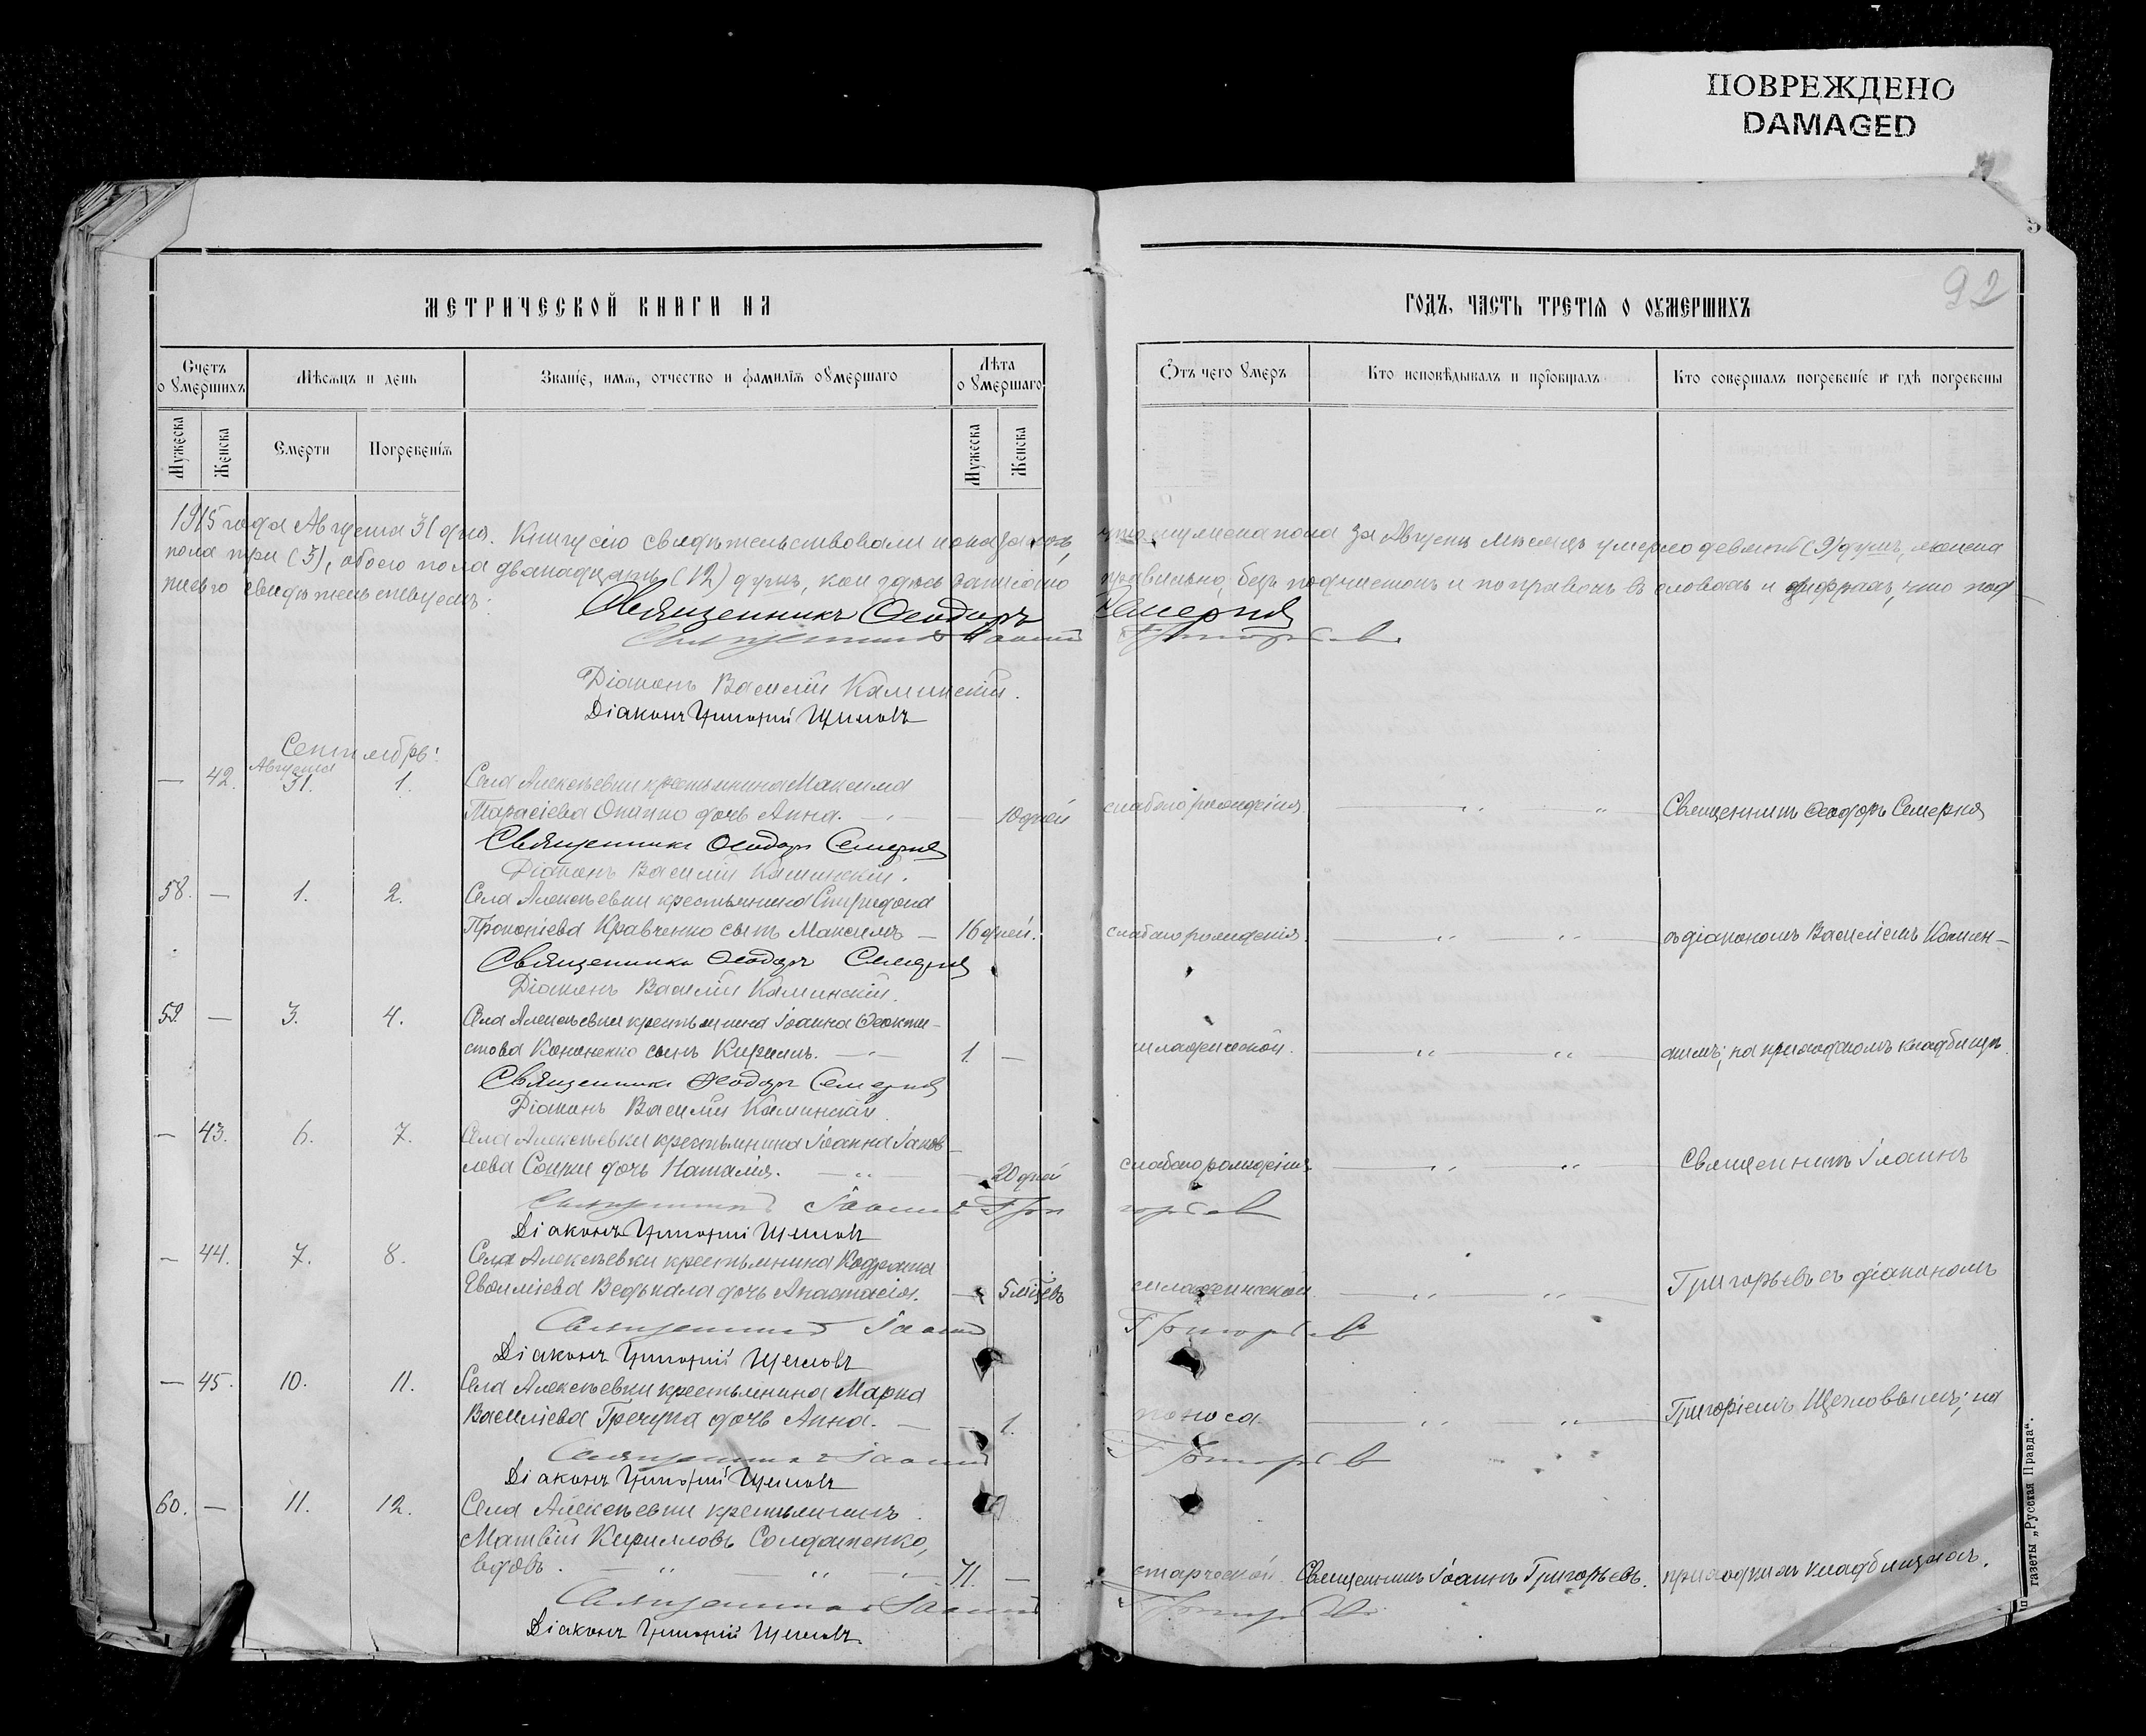 ПОВРЕЖДЕНО
DAMAGED
92
МЕТРИЧЕСКОЙ КНИГИ НА ГОДЪ, ЧАСТЬ ТРЕТІЯ О ОУМЕРШИХЪ
Счетъ о умершихъ
Мѣсяцъ и день
Званіе, имя, отчество и фамилія оумершаго
Лѣта о умершаго
Отъ чего умеръ
Кто исповѣдывалъ и пріобщалъ
Кто совершалъ погребеніе и гдѣ погребены
Мужеска
Женска
Смерти
Погребенія
Мужеска
Женска
1915 года Августа 31 дня. Книгу сію свидѣтельствовали и оказалось, что мужеска пола за Августъ мѣсяцъ умерло девять (9) душъ, женска
пола три (3), обоего пола двѣнадцать (12) душъ, кои здѣсь записано правильно, безъ подчистокъ и поправокъ въ словахъ и цифрахъ, что под
писью свидѣтельствуемъ:
Священникъ Ѳеодоръ Семерня
Священникъ Іоаннъ Григорьевъ
Діаконъ Василій Каминскій.
Діаконъ Григорій Щегловъ
Сентябрь:
— 42. Августа 31. 1. Села Алексѣевки крестьянина Максима
Тарасіева Онипко дочь Анна. — 10 дней слабаго рожденія. Священникъ Ѳеодоръ Семерня
Священникъ Ѳеодоръ Семерня
Діаконъ Василій Каминскій.
58. — 1. 2. Села Алексѣевки крестьянина Спиридона
Прокопіева Кравченко сынъ Максимъ — 16 дней. слабаго рожденія. съ діакономъ Василіемъ Камин-
Священникъ Ѳеодоръ Семерня
Діаконъ Василій Каминскій.
59. — 3. 4. Села Алексѣевки крестьянина Іоанна Ѳеокти-
стова Кононенко сынъ Кириллъ. 1. — младенческой. скимъ; на приходскомъ кладбищѣ.
Священникъ Ѳеодоръ Семерня
Діаконъ Василій Каминскій.
— 43. 6. 7. Села Алексѣевки крестьянина Іоанна Іаков-
лева дочь Наталія. — 20 дней слабаго рожденія Священникъ Іоаннъ
Священникъ Іоаннъ Григорьевъ
Діаконъ Григорій Щегловъ
— 44. 7. 8. Села Алексѣевки крестьянина
Евѳиміева дочь Анастасія. — 5 мѣсяцевъ младенческой Григорьевъ съ діакономъ
Священникъ Іоаннъ Григорьевъ
Діаконъ Григорій Щегловъ
— 45. 10. 11. Села Алексѣевки крестьянина Марка
Василіева дочь Анна. — 1. поноса Григоріемъ Щегловымъ; на
Священникъ Іоаннъ Григорьевъ
Діаконъ Григорій Щегловъ
60. — 11. 12. Села Алексѣевки крестьянинъ
Матвій Кирилловъ Солдатенко,
вдовъ. 71. — старческой. Священникъ Іоаннъ Григорьевъ. приходскихъ кладбищахъ.
Священникъ Іоаннъ Григорьевъ
Діаконъ Григорій Щегловъ.
газеты „Русская Правда“.